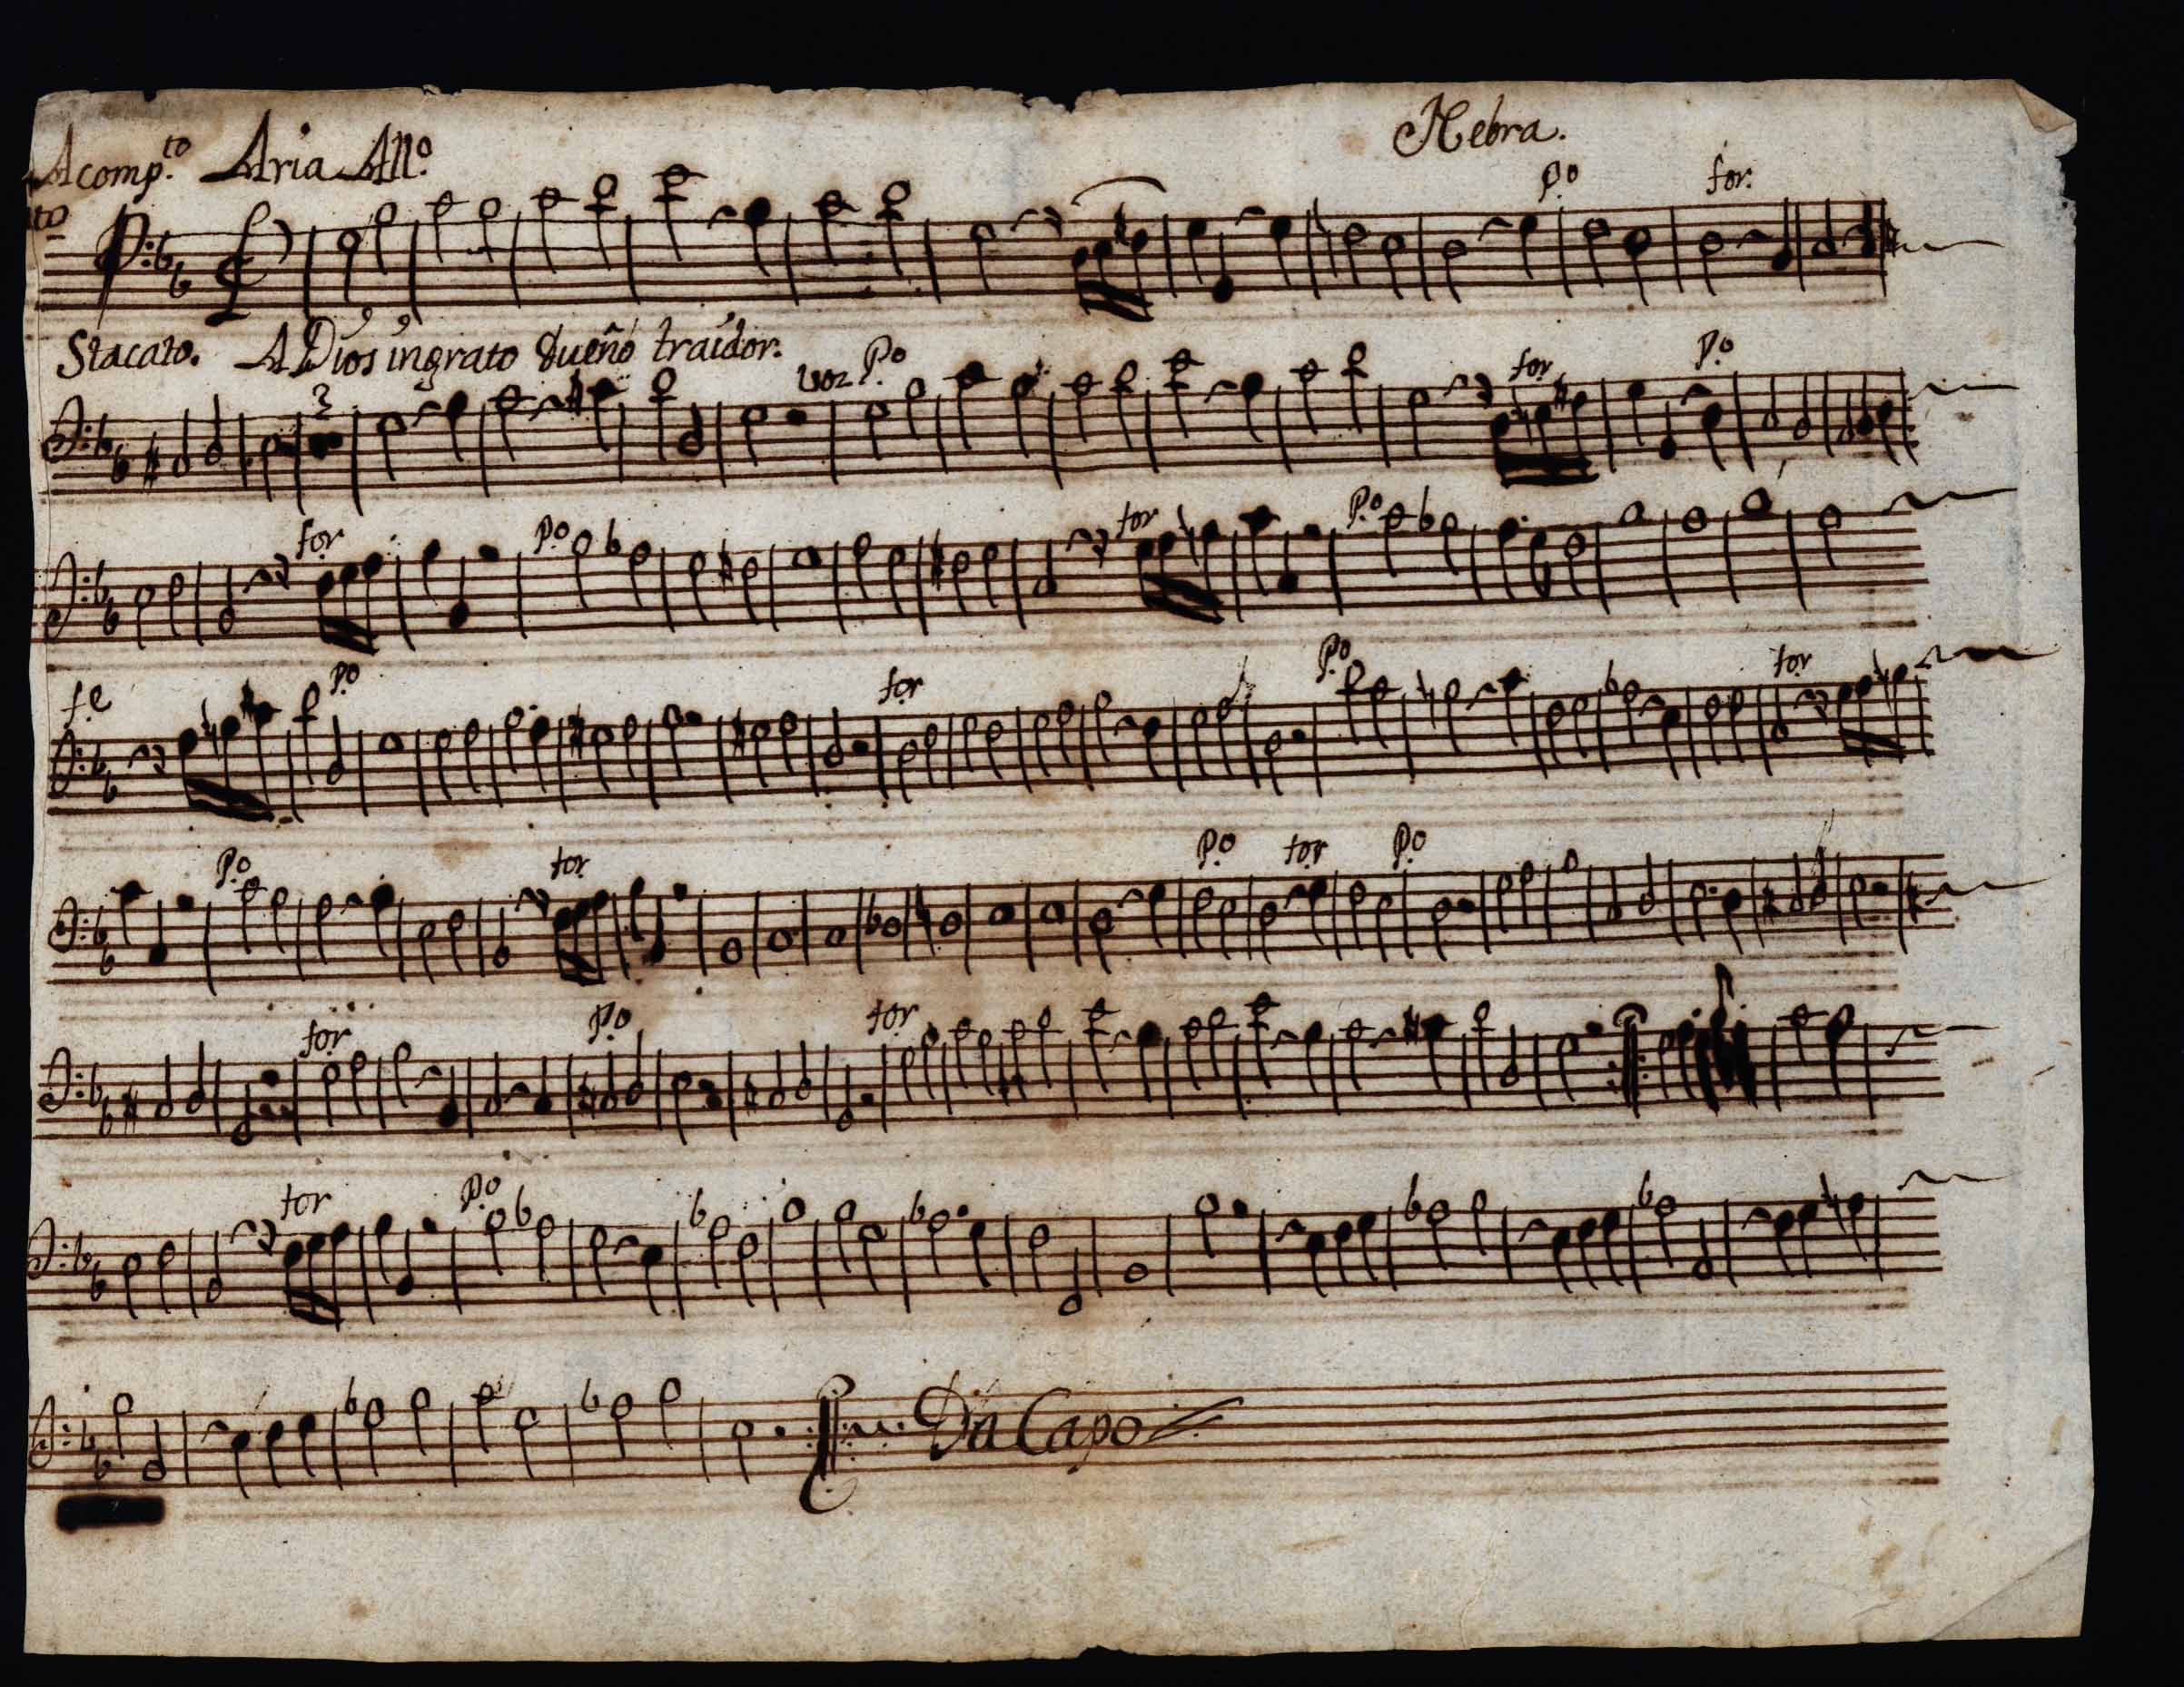 Acomp.to Aria All.o Nebra.
to
p.o for:
Stacato. A Dios ingrato dueño traidor.
3 voz p.o for p.o
for p.o for p.o
f.e p.o for p.o for
p.o for p.o for p.o
for p.o for
for p.o
Da Capo